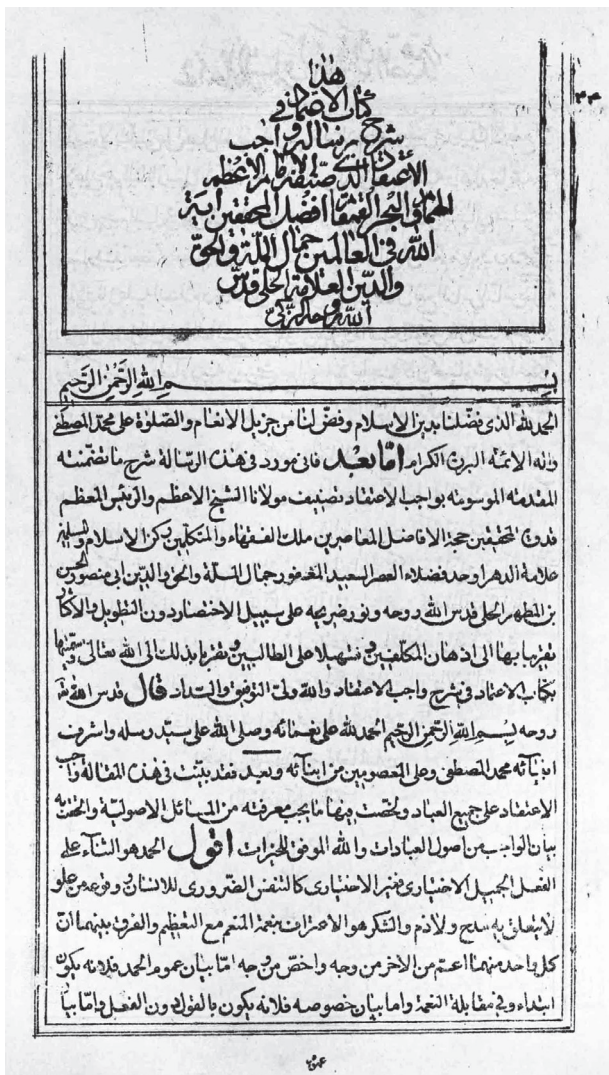 ٣٤
هذا
كتاب الاعتماد في
شرح رسالة واجب
الاعتقاد الذي صنفه الامام الاعظم
الله في العالمين جمال الملة والحق
والدين العلامة الحلي قدس
الله روحه
بسم الله الرحمن الرحيم
الحمد لله الذي فضلنا بدين الاسلام وفضّ لنا من جزيل الانعام والصلوة على محمد المصطفى
واله الائمة البررة الكرام امّا بعد فاني مورد في هذه الرسالة شرح ما تضمنته
المقدمة الموسومة بواجب الاعتقاد تصنيف مولانا الشيخ الاعظم والرئيس المعظم
قدوة المحققين حجة الافاضل المعاصرين ملك الفقهاء والمتكلمين ركن الاسلام والمسلمين
علامة الدهر اوحد فضلاء العصر السعيد المغفور جمال الملة والحق والدين ابي منصور الحسن
بن المطهر الحلي قدس الله روحه ونور ضريحه على سبيل الاختصار دون التطويل والاكثار
تقريبا بها الى اذهان المكلفين وتسهيلا على الطالبين وتقربا بذلك الى الله تعالى وسمّيتها
بكتاب الاعتماد في شرح واجب الاعتقاد والله وليّ التوفيق والسداد قال قدس الله
روحه بسم الله الرحمن الرحيم الحمد لله على نعمائه وصلى الله على سيّد رسله واشرف
انبيائه محمد المصطفى وعلى المعصومين من ابنائه وبعد فقد بيّنت في هذه المقالة واجب
الاعتقاد على جميع العباد ولخصت فيها ما يجب معرفته من المسائل الاصولية والحقت به
بيان الواجب من اصول العبادات والله الموفق للخيرات اقول الحمد هو الثناء على
الفعل الجميل الاختياري فغير الاختياري كالتنفس الضروري للانسان ووقوعه من علو
لا يتعلق به مدح ولا ذم والشكر هو الاعتراف بنعمة المنعم مع التعظيم والفرق بينهما انّ
كل واحد منهما اعمّ من الاخر من وجه واخصّ من وجه امّا بيان عموم الحمد فلانه يكون
ابتداء وفي مقابلة النعمة واما بيان خصوصه فلانه يكون بالقول دون الفعل وامّا بيان
عموم